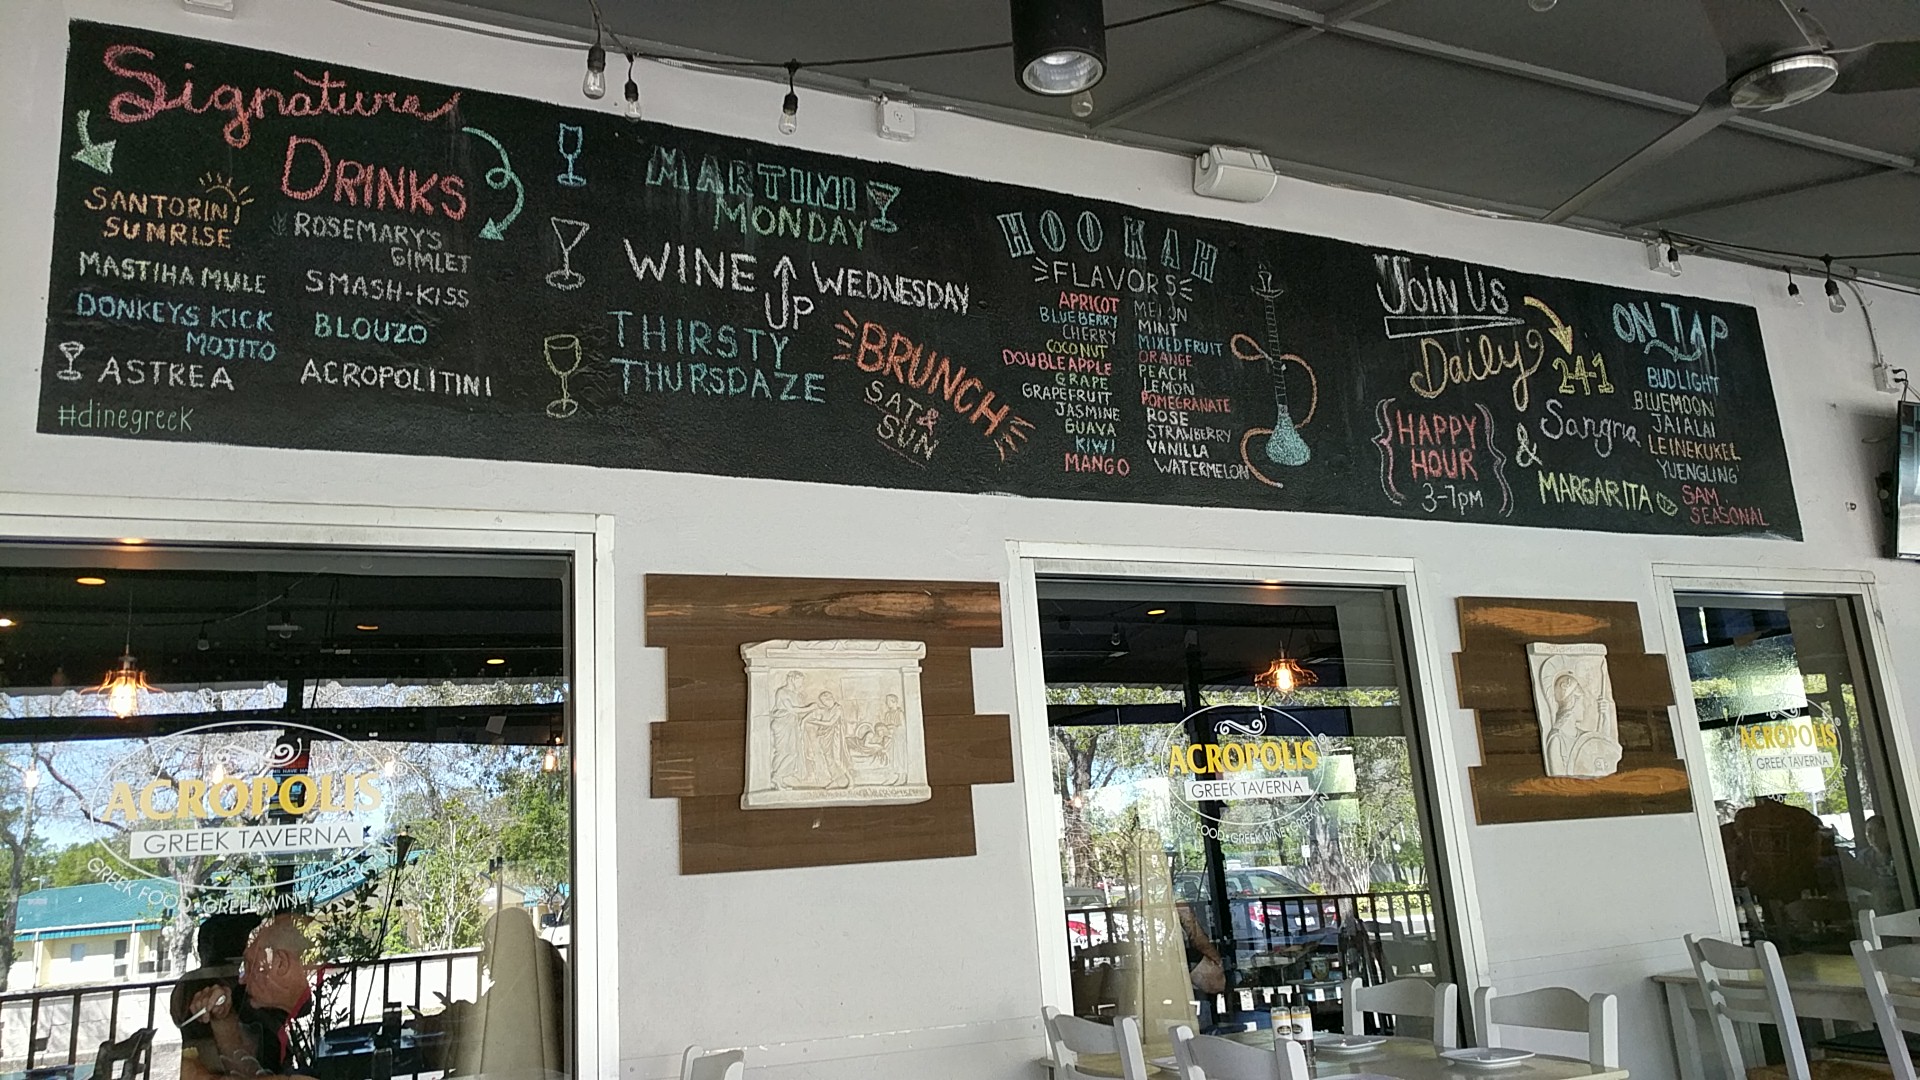 Signature
DRINKS
SANTORINI
SUNRISE
MASTIHA MULE
DONKEYS KICK
MOJITO
ASTREA
#dinegreek
ROSEMARY'S
GIMLET
SMASH-KISS
BLOUZO
ACROPOLITINI
MARTINI
MONDAY
WINE UP WEDNESDAY
THIRSTY
THURSDAZE
BRUNCH
SAT &
SUN
HOOKAH
FLAVORS
APRICOT
BLUEBERRY
CHERRY
COCONUT
DOUBLE APPLE
GRAPE
GRAPEFRUIT
JASMINE
GUAVA
KIWI
MANGO
MELON
MINT
MIXED FRUIT
ORANGE
PEACH
LEMON
POMEGRANATE
ROSE
STRAWBERRY
VANILLA
WATERMELON
JOIN US
Daily
HAPPY
HOUR
3-7PM
24-1
Sangria
&
MARGARITA
ON TAP
BUDLIGHT
BLUEMOON
JAIALAI
LEINEKUKEL
YUENGLING
SAM
SEASONAL
ACROPOLIS
GREEK TAVERNA
GREEK FOOD • GREEK WINE
ACROPOLIS®
GREEK TAVERNA
GREEK FOOD • GREEK WINE
ACROPOLIS
GREEK TAVERNA